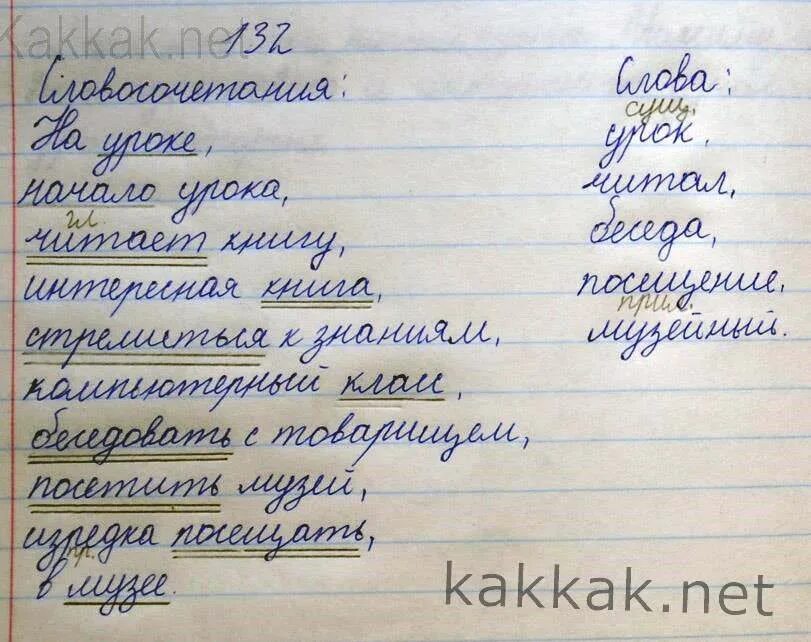 Kakkak.net
132
Словосочетания:
На уроке,
начало урока,
гл.
читает книгу,
интересная книга,
стремиться к знаниям,
компьютерный класс,
беседовать с товарищем,
посетить музей,
изредка посещать,
пр.
в музее.
Слова:
сущ.
урок,
читал,
беседа,
посещение,
прил.
музейный.
kakkak.net